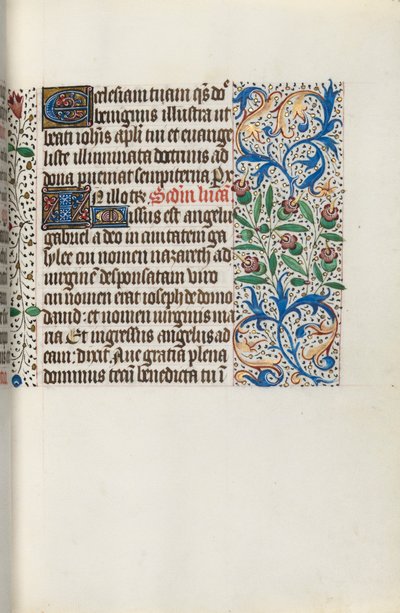 Ecclesiam tuam qs̄ do
benignus illustra ut
beati ioh̄is apl̄i tui et euange
liste illuminata doctrinis ad
dona pueniat sempiterna P xp̄
IN illo tp̄r Sedm̄ lucā
Missus est angelus
gabriel a deo in ciuitatem ga
lylee cui nomen nazareth ad
uirginē desponsatam viro
cui nomen erat ioseph de domo
dauid et nomen uirginis ma
ria Et ingressus angelus ad
eam dixit Aue gratia plena
dominus tecū benedicta tu ī